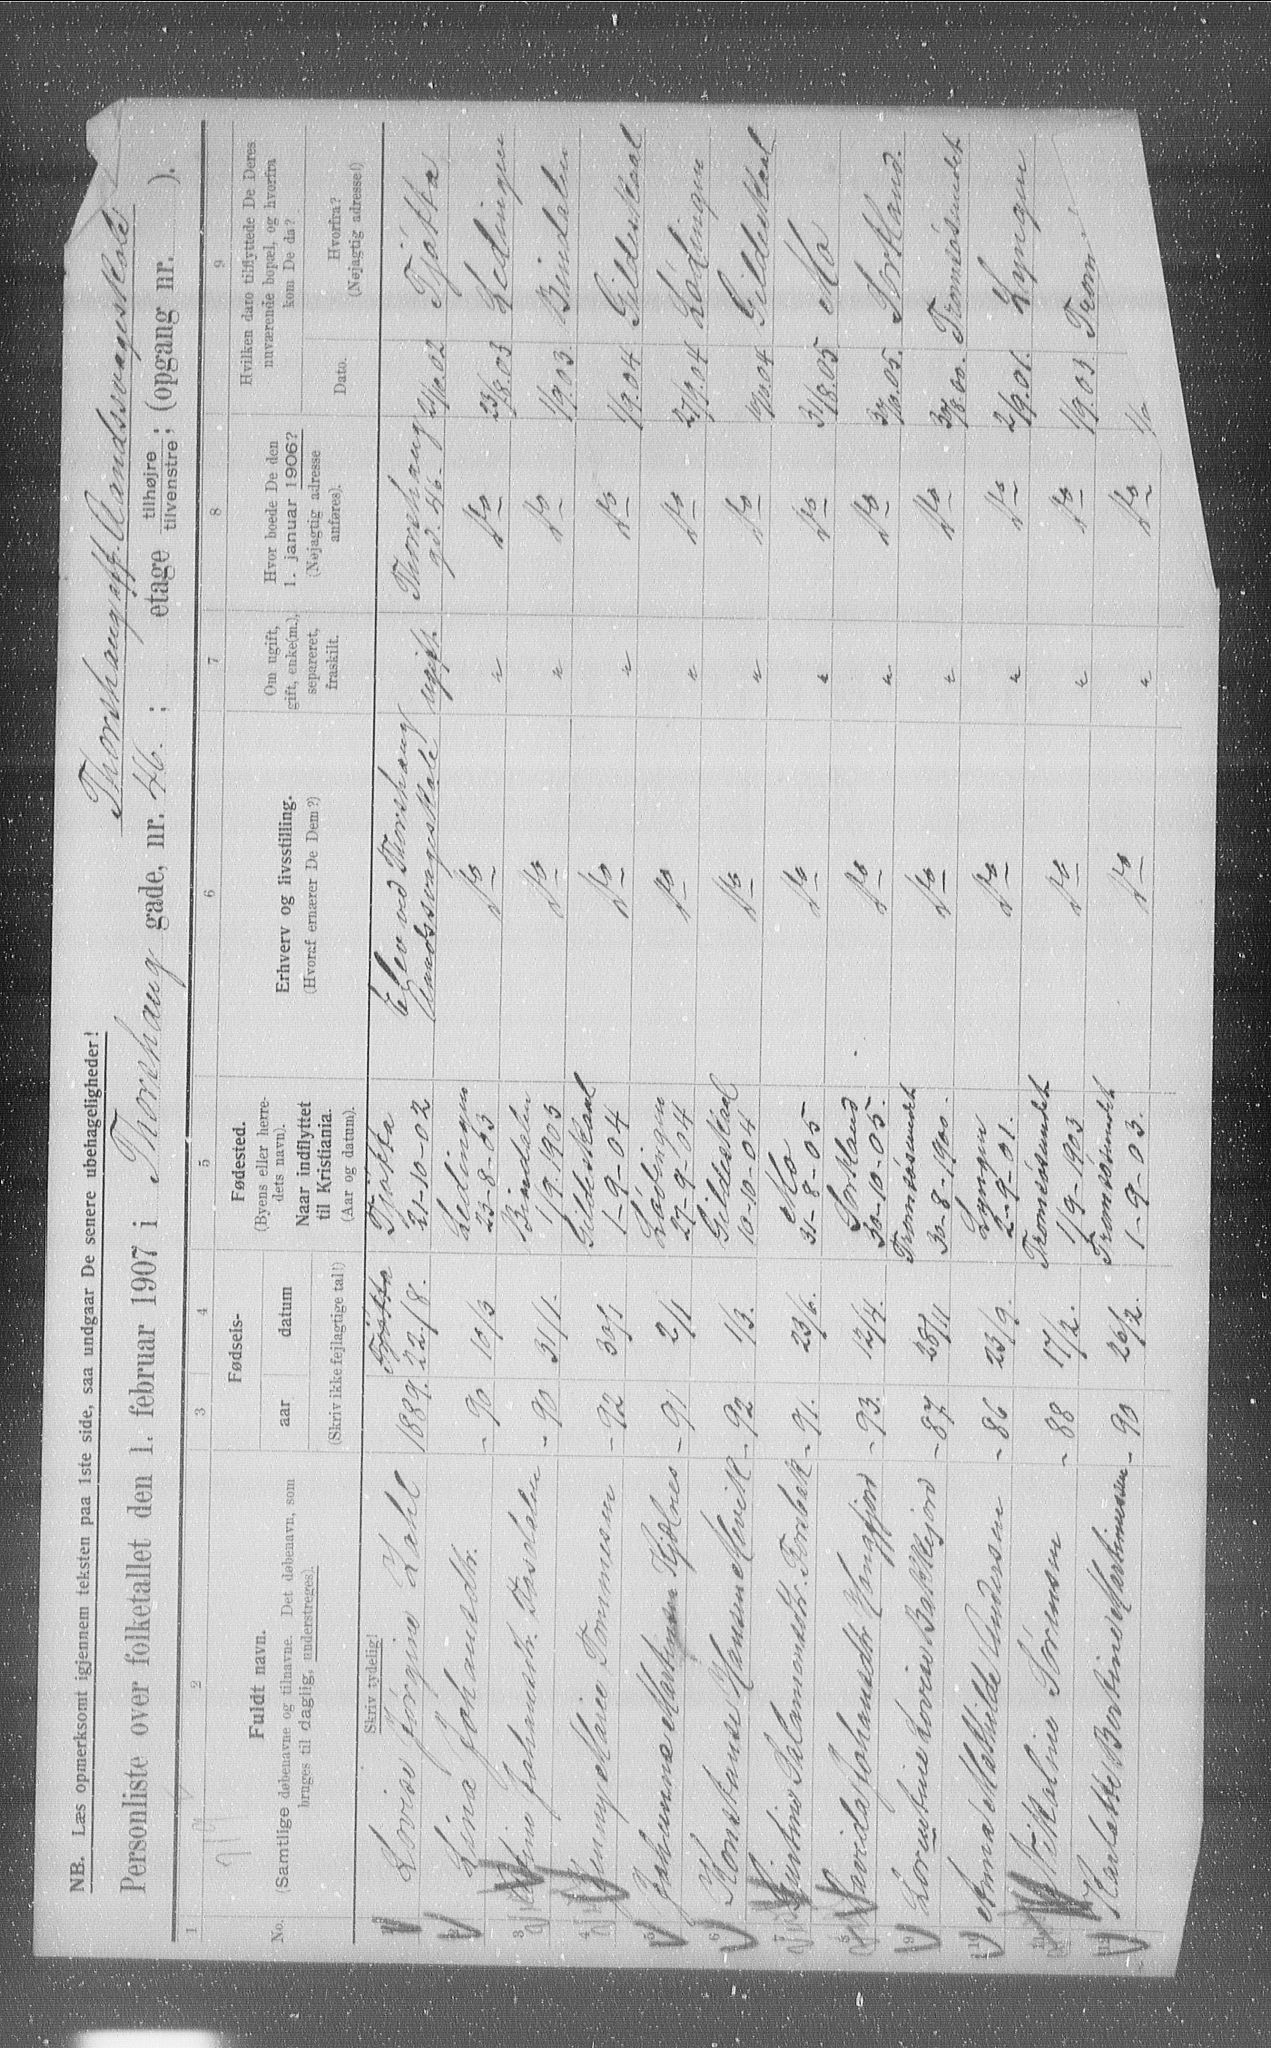 NB. Læs opmerksomt igjennem teksten paa 1ste side, saa undgaar De senere ubehageligheder!
Thorshaug off. Aandssvageskole
Personliste over folketallet den 1. februar 1907 i Thorshaug gade, nr. 46. ; etage tilhøjre tilvenstre ; (opgang nr. ).
1 2 3 4 5 6 7 8 9
No.
Fuldt navn.
(Samtlige døbenavne og tilnavne. Det døbenavn, som
bruges til daglig, understreges).
Fødsels-
aar datum
(Skriv ikke fejlagtige tal!)
Fødested.
(Byens eller herre-
dets navn).
Naar indflyttet
til Kristiania.
(Aar og datum).
Erhverv og livsstilling.
(Hvoraf ernærer De Dem?)
Om ugift,
gift, enke(m.),
separeret,
fraskilt.
Hvor boede De den
1. januar 1906?
(Nøjagtig adresse
anføres).
Hvilken dato tilflyttede De Deres
nuværende bopæl, og hvorfra
kom De da?
Dato.
Hvorfra?
(Nøjagtig adresse!)
Skriv tydelig!
1 Lovise Jørgine Zahl 1889. 22/8. Tjøtta 21-10-02 Elev ved Thorshaug Aandssvageskole ugift Thorshaug gd. 46- 21/10.02 Tjøtta
2 Lina Johansdtr. - 90 10/3 Lødingen 23-8-03 do " do 23/8.03 Lødingen
3 Johansdtr. - 90 31/1. Bindalen 1/9.1903 do " do 1/9.03. Bindalen
4 Jenny Marie Tommesen - 92 30/1 Gildeskaal 1-9-04 do " do 1/9.04 Gildeskaal
5 Johanna - 91 2/1 Lødingen 27-9-04 do " do 27/9.04 Lødingen
6 Konstanse Hansine Mevik - 92 1/3. Gildeskaal 10-10-04 do " do 10/10.04 Gildeskaal
7 Salamonsdtr. - 91. 23/6. Mo 31-8-05 do " do 31/8.05 Mo
8 Johansdtr. - 93. 12/4. Sortland 30-10-05. do " do 30/10.05. Sortland.
9 Lovise Bakkejord - 87 25/11 Tromsøsundet 30-8-1900. do " do 30/8.00. Tromsøsundet
10 Anna Mathilde Andersen - 86 23/9. Lyngen 2-9-01. do " do 2/9.01. Lyngen
11 Nikoline Sørensen - 88 17/2. Tromsøsundet 1/9-1903 do " do 1/9.03. Troms
12 Bertine Martinussen - 90 26/2. Tromsøsundet 1-9-03. do " do 1/9